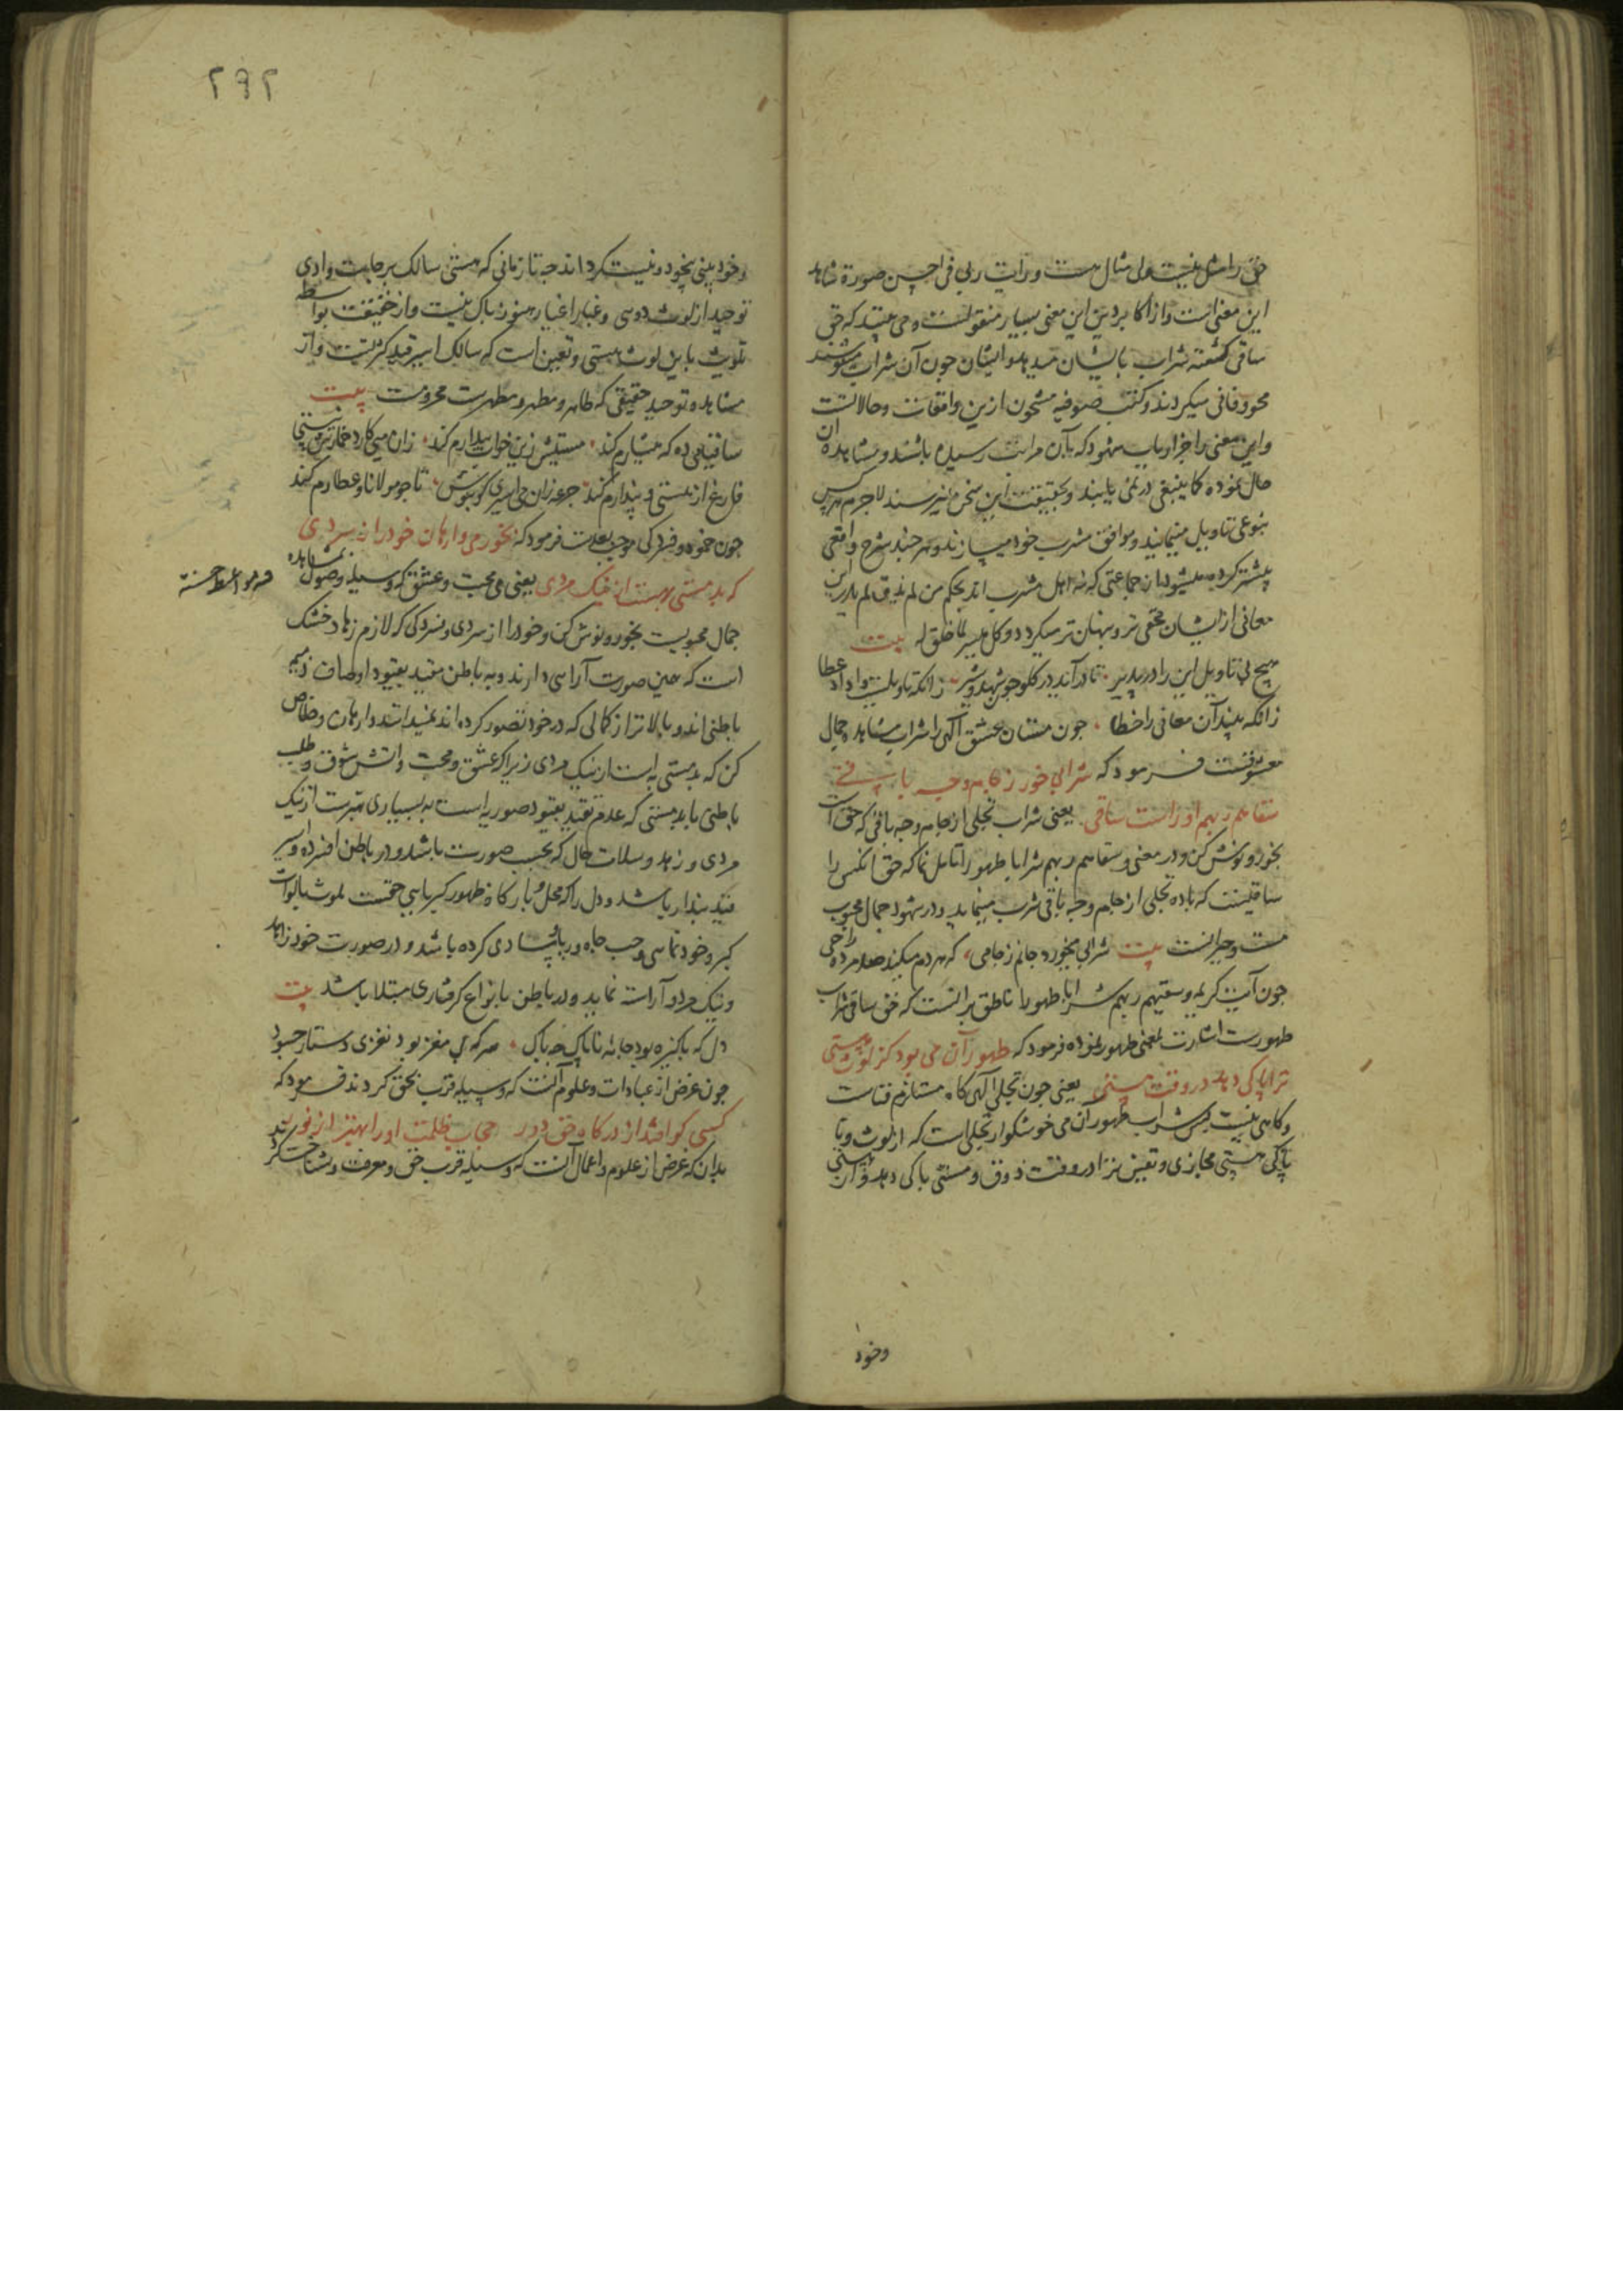 حق را مثل نیست ولی مثال هست و رایت ربی فی احسن صورة شاهد
این معنی است و از اکابر دین این معنی بسیار منقولست و می بینند که حق
ساقی کشته شراب بایشان میدهد و ایشان چون آن شراب مینوشند
محو و فانی میکردند و کتب صوفیه مشحون ازین واقعات و حالاتست
و این معنی را جز ارباب شهود که بآن مراتب رسیده باشند و مشاهده آن
حال نموده کما ینبغی در نمی یابند و بحقیقت این سخن نمیرسند لاجرم هر کس
بنوعی تاویل مینمایند و موافق مشرب خود میسازند و هر چند شرح واقعی
بیشتر کرده میشود از جماعتی که نه اهل مشرب اند بحکم من لم یذق لم یدر این
معانی از ایشان مخفی تر و پنهان تر میکردد و کل میسر لما خلق له بیت
هیچ بی تاویل این را در پذیر تا درآید در کلو چون شهد و شیر زانکه تاویلست واداد عطا
زانکه بیند آن معانی را خطا چون مستان عشق الهی را شراب مشاهده جمال
معشوقست فرمود که شرابی خور ز جام وجه باقی
سقاهم ربهم او راست ساقی یعنی شراب تجلی از جام وجه باقی که حق است
بخور و نوش کن و در معنی و سقاهم ربهم شرابا طهورا تامل نما که حق آنکس را
ساقیست که باده تجلی از جام وجه باقی شرب مینماید و در شهود جمال محبوب
مست و حیرانست بیت شرابی بخورد جانم ز جامی که هر دم میکند صد مرده را حی
چون آیت کریمه و سقیهم ربهم شرابا طهورا ناطق برانست که حق ساقی شراب
طهورست اشارت بمعنی طهور نموده فرمود که طهور آن می بود کز لوث هستی
ترا پاکی دهد در وقت مستی یعنی چون تجلی الهی کاه مستلزم فناست
و کاهی نیست پس شراب طهور آن می خوشکوار تجلی است که از لوث و نا
پاکی هستی مجازی و تعین ترا در وقت ذوق و مستی پاکی دهد و از هستی
وخود
۲۹۲
و خود بینی بیخود و نیست کرداند چه تا زمانی که هستی سالک برجاست وادی
توحید از لوث دوسی و غبار اغیار هنوز پاک نیست و از حقیقت بواسطه
تلویث باین لوث هستی و تعین است که سالک اسیر قید کثرتست و از
مشاهده توحید حقیقی که طاهر و مطهر و مطهرست محرومست بیت
ساقیا می ده که هشیارم کند مستیش زین خواب بیدارم کند زان میی کارد خمارش نیستی
فارغ از هستی و پندارم کند جرعه زان می اسیری کو بنوش تا چو مولانا و عطارم کند
چون خمود و فسردکی موجب بعدست فرمود که بخور می وارهان خود را ز سردی
که بد مستی بهست از نیک مردی یعنی می محبت و عشق که وسیله وصول بمشاهده
جمال محبوبست بخور و نوش کن و خود را از سردی و فسردکی که لازم زهاد خشک
است که همین صورت آراسی دارند و به باطن مقید بقیود اوصاف ذمیمه
باطنی اند و بالاتر از کمالی که در خود تصور کرده اند نمیدانند وارهان و خلاص
کن که بد مستی به است از نیک مردی زیرا که عشق و محبت و آتش شوق و طلب
باطنی با بد مستی که عدم تقید بقیود صوریه است به بسیاری بهترست از نیک
مردی و زهد و سلامت حال که بحسب صورت باشد و در باطن افسرده و اسیر
قید پندار باشد و دل را که محل و بارکاه ظهور کبریایی حقست بلوث بالواث
کبر و خود نمایی و حب جاه و ریا ساری کرده باشد و در صورت خود زاهد
و نیک مرد آراسته نماید و در باطن بانواع کرفتاری مبتلا باشد بیت
دل که پاکیزه بود جامه ناپاک چه باک هر که بی مغز بود نغزی دستار چه سود
چون غرض از عبادات و علوم آنست که وسیله قرب بحق کردند فرمود که
کسی کو افتد از درکاه حق دور حجاب ظلمت او را بهتر از نور
بدان که غرض از علوم و اعمال آنست که وسیله قرب حق و معرفت و شناخت کردند